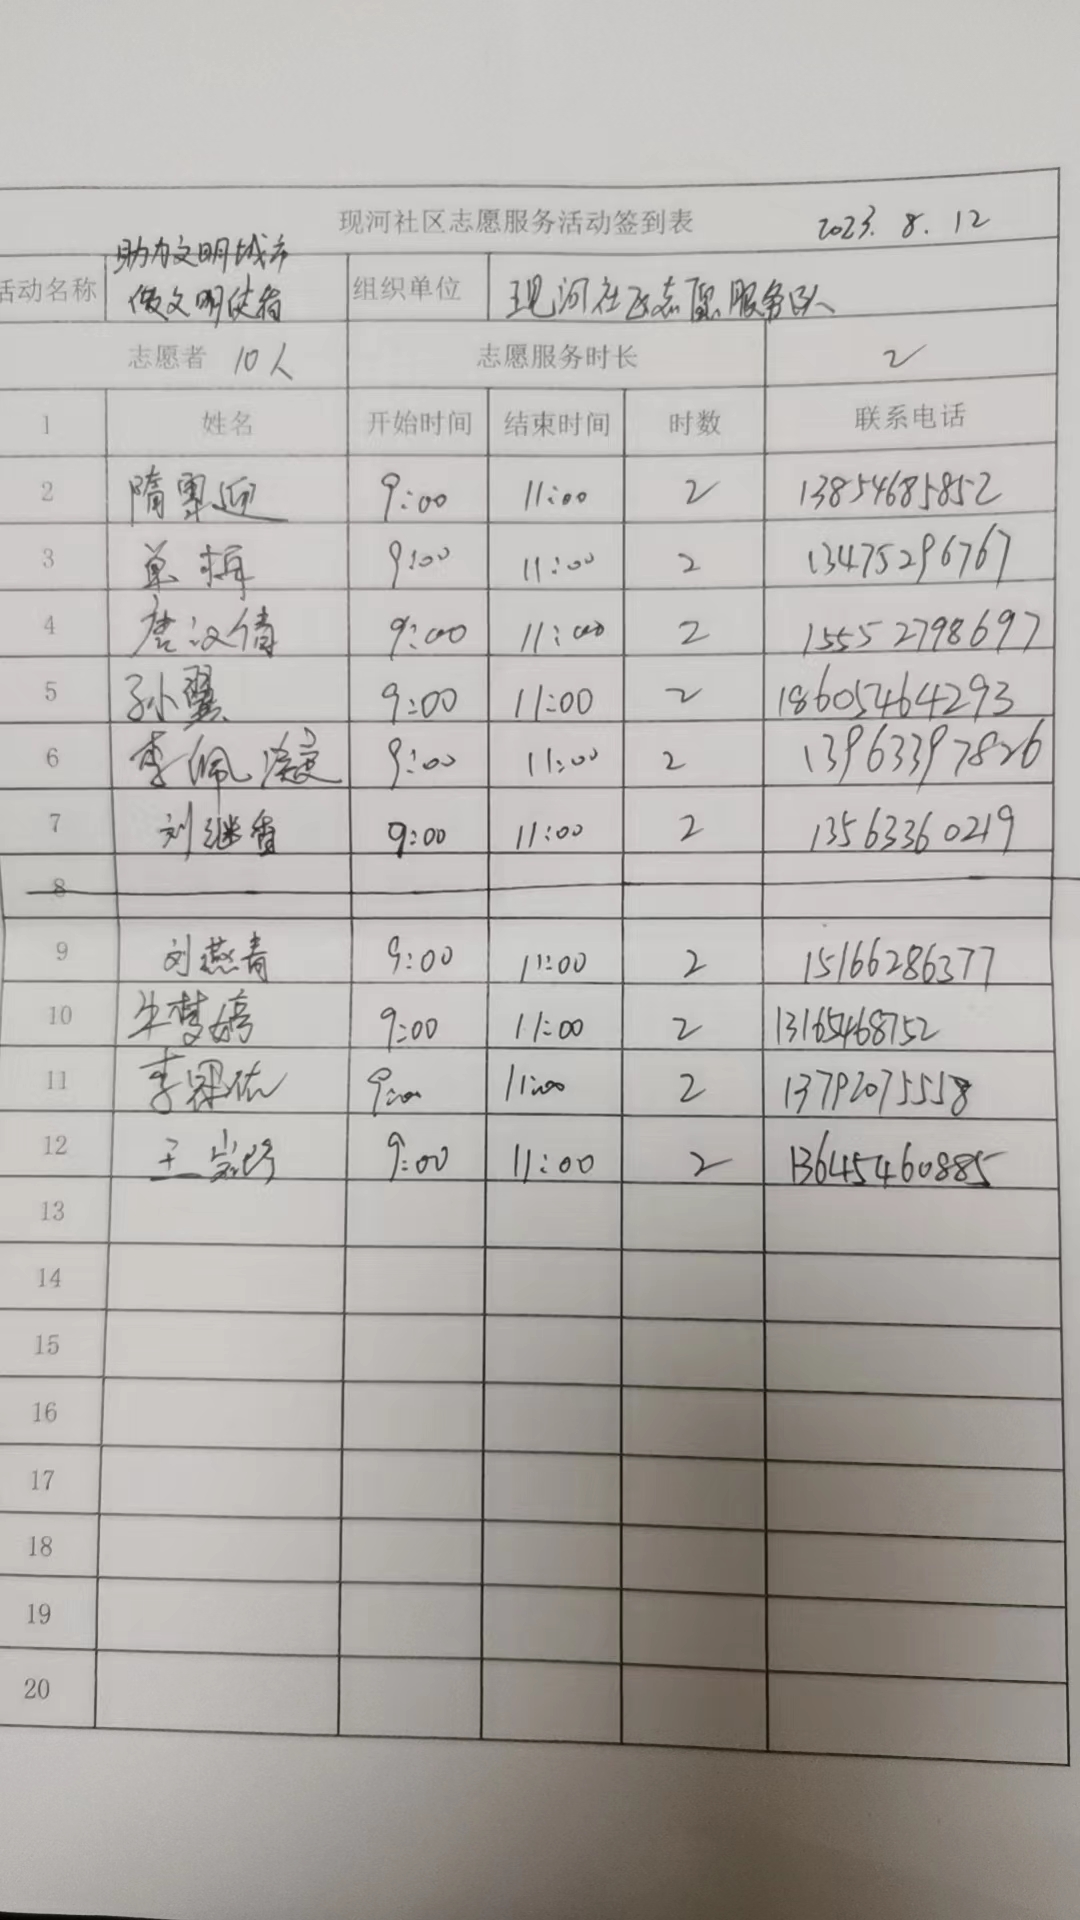 现河社区志愿服务活动签到表 2023.8.12
活动名称 助力文明城市 做文明使者 组织单位 现河社区志愿服务队
志愿者 10人 志愿服务时长 2
1 姓名 开始时间 结束时间 时数 联系电话
2 隋翠迎 9:00 11:00 2 13854685852
3 单梅 9:00 11:00 2 13475296767
4 唐汉倩 9:00 11:00 2 15552798697
5 孙翼 9:00 11:00 2 18605464293
6 李佩凝 9:00 11:00 2 13963397826
7 刘继香 9:00 11:00 2 13563360219
8
9 刘燕青 9:00 11:00 2 15166286377
10 牛梦婷 9:00 11:00 2 13165468752
11 李 9:00 11:00 2 13792075558
12 王 9:00 11:00 2 13645460885
13
14
15
16
17
18
19
20